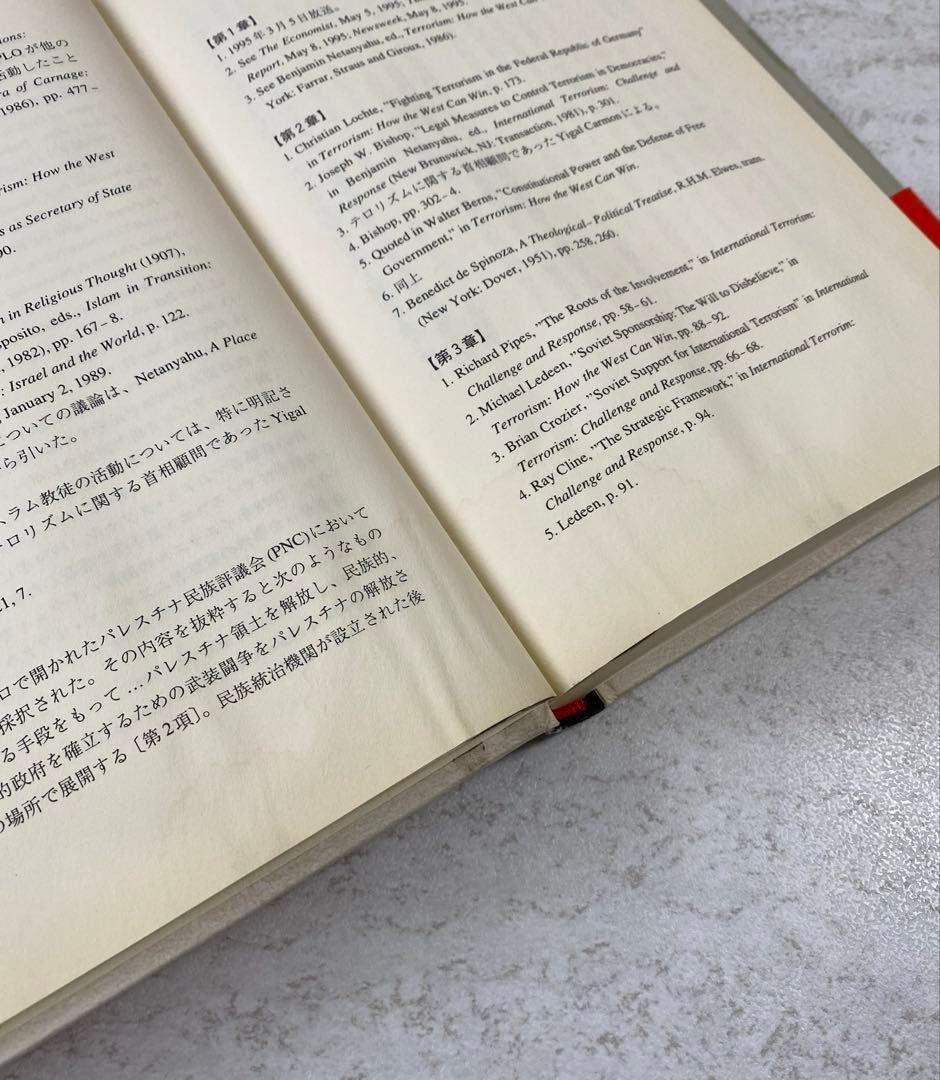 ions:
PLOが他の
活動したこと
ra of Carnage:
1986), pp. 477–
rism: How the West
s as Secretary of State
90.
n in Religious Thought (1907),
posito, eds., Islam in Transition:
, 1982), pp. 167–8.
: Israel and the World, p. 122.
January 2, 1989.
についての議論は、Netanyahu, A Place
ら引いた。
スラム教徒の活動については、特に明記さ
テロリズムに関する首相顧問であった Yigal
1, 7.
ロで開かれたパレスチナ民族評議会(PNC)において
採択された。その内容を抜粋すると次のようなもの
る手段をもって…パレスチナ領土を解放し、民族的、
的政府を確立するための武装闘争をパレスチナの解放さ
の場所で展開する［第2項］。民族統治機関が設立された後
【第1章】
1. 1995年3月5日放送。
2. See The Economist, May 5, 1995;
Report, May 8, 1995; Newsweek, May 8, 1995.
3. See Benjamin Netanyahu, ed., Terrorism: How the West Can Win
York: Farrar, Straus and Giroux, 1986).
【第2章】
1. Christian Lochte, "Fighting Terrorism in the Federal Republic of Germany"
in Terrorism: How the West Can Win, p. 173.
2. Joseph W. Bishop, "Legal Measures to Control Terrorism in Democracies,"
in Benjamin Netanyahu, ed., International Terrorism: Challenge and
Response (New Brunswick, NJ: Transaction, 1981), p. 301.
3. テロリズムに関する首相顧問であった Yigal Carmon による。
4. Bishop, pp. 302–4.
5. Quoted in Walter Berns, "Constitutional Power and the Defense of Free
Government," in Terrorism: How the West Can Win.
6. 同上
7. Benedict de Spinoza, A Theological–Political Treatise, R.H.M. Elwes, trans.
(New York: Dover, 1951), pp. 258, 260.
【第3章】
1. Richard Pipes, "The Roots of the Involvement," in International Terrorism:
Challenge and Response, pp. 58–61.
2. Michael Ledeen, "Soviet Sponsorship: The Will to Disbelieve," in
Terrorism: How the West Can Win, pp. 88–92.
3. Brian Crozier, "Soviet Support for International Terrorism" in International
Terrorism: Challenge and Response, pp. 66–68.
4. Ray Cline, "The Strategic Framework," in International Terrorism:
Challenge and Response, p. 94.
5. Ledeen, p. 91.